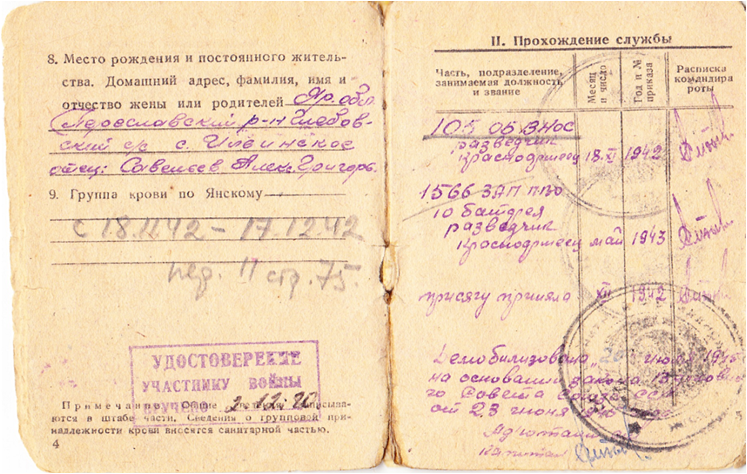 8. Место рождения и постоянного житель-
ства. Домашний адрес, фамилия, имя и
отчество жены или родителей Яр. обл.
Ярославский р-н Глебов-
ский с/с с. Ильинское
отец: Савельев Алек. Григорь.
9. Группа крови по Янскому
с 18.11.42 – 17.12.42
пер. 11 стр. 75.
УДОСТОВЕРЕНИЕ
УЧАСТНИКУ ВОЙНЫ
ВРУЧЕНО 2.12.80
Примечание. Общие сведения записыва-
ются в штабе части. Сведения о групповой при-
надлежности крови вносятся санитарной частью.
4
II. Прохождение службы
Часть, подразделение, занимаемая должность и звание
Месяц и число
Год и № приказа
Расписка командира роты
105 ОБ ВНОС
разведчик
красноармеец 18.XI 1942
1566 ЗАП ПВО
10 батарея
разведчик
красноармеец май 1943
присягу приняла XII 1942
Демобилизована июля 1945
на основании закона
го Совета СССР
от 23 июня 1945
Адъютант
капитан